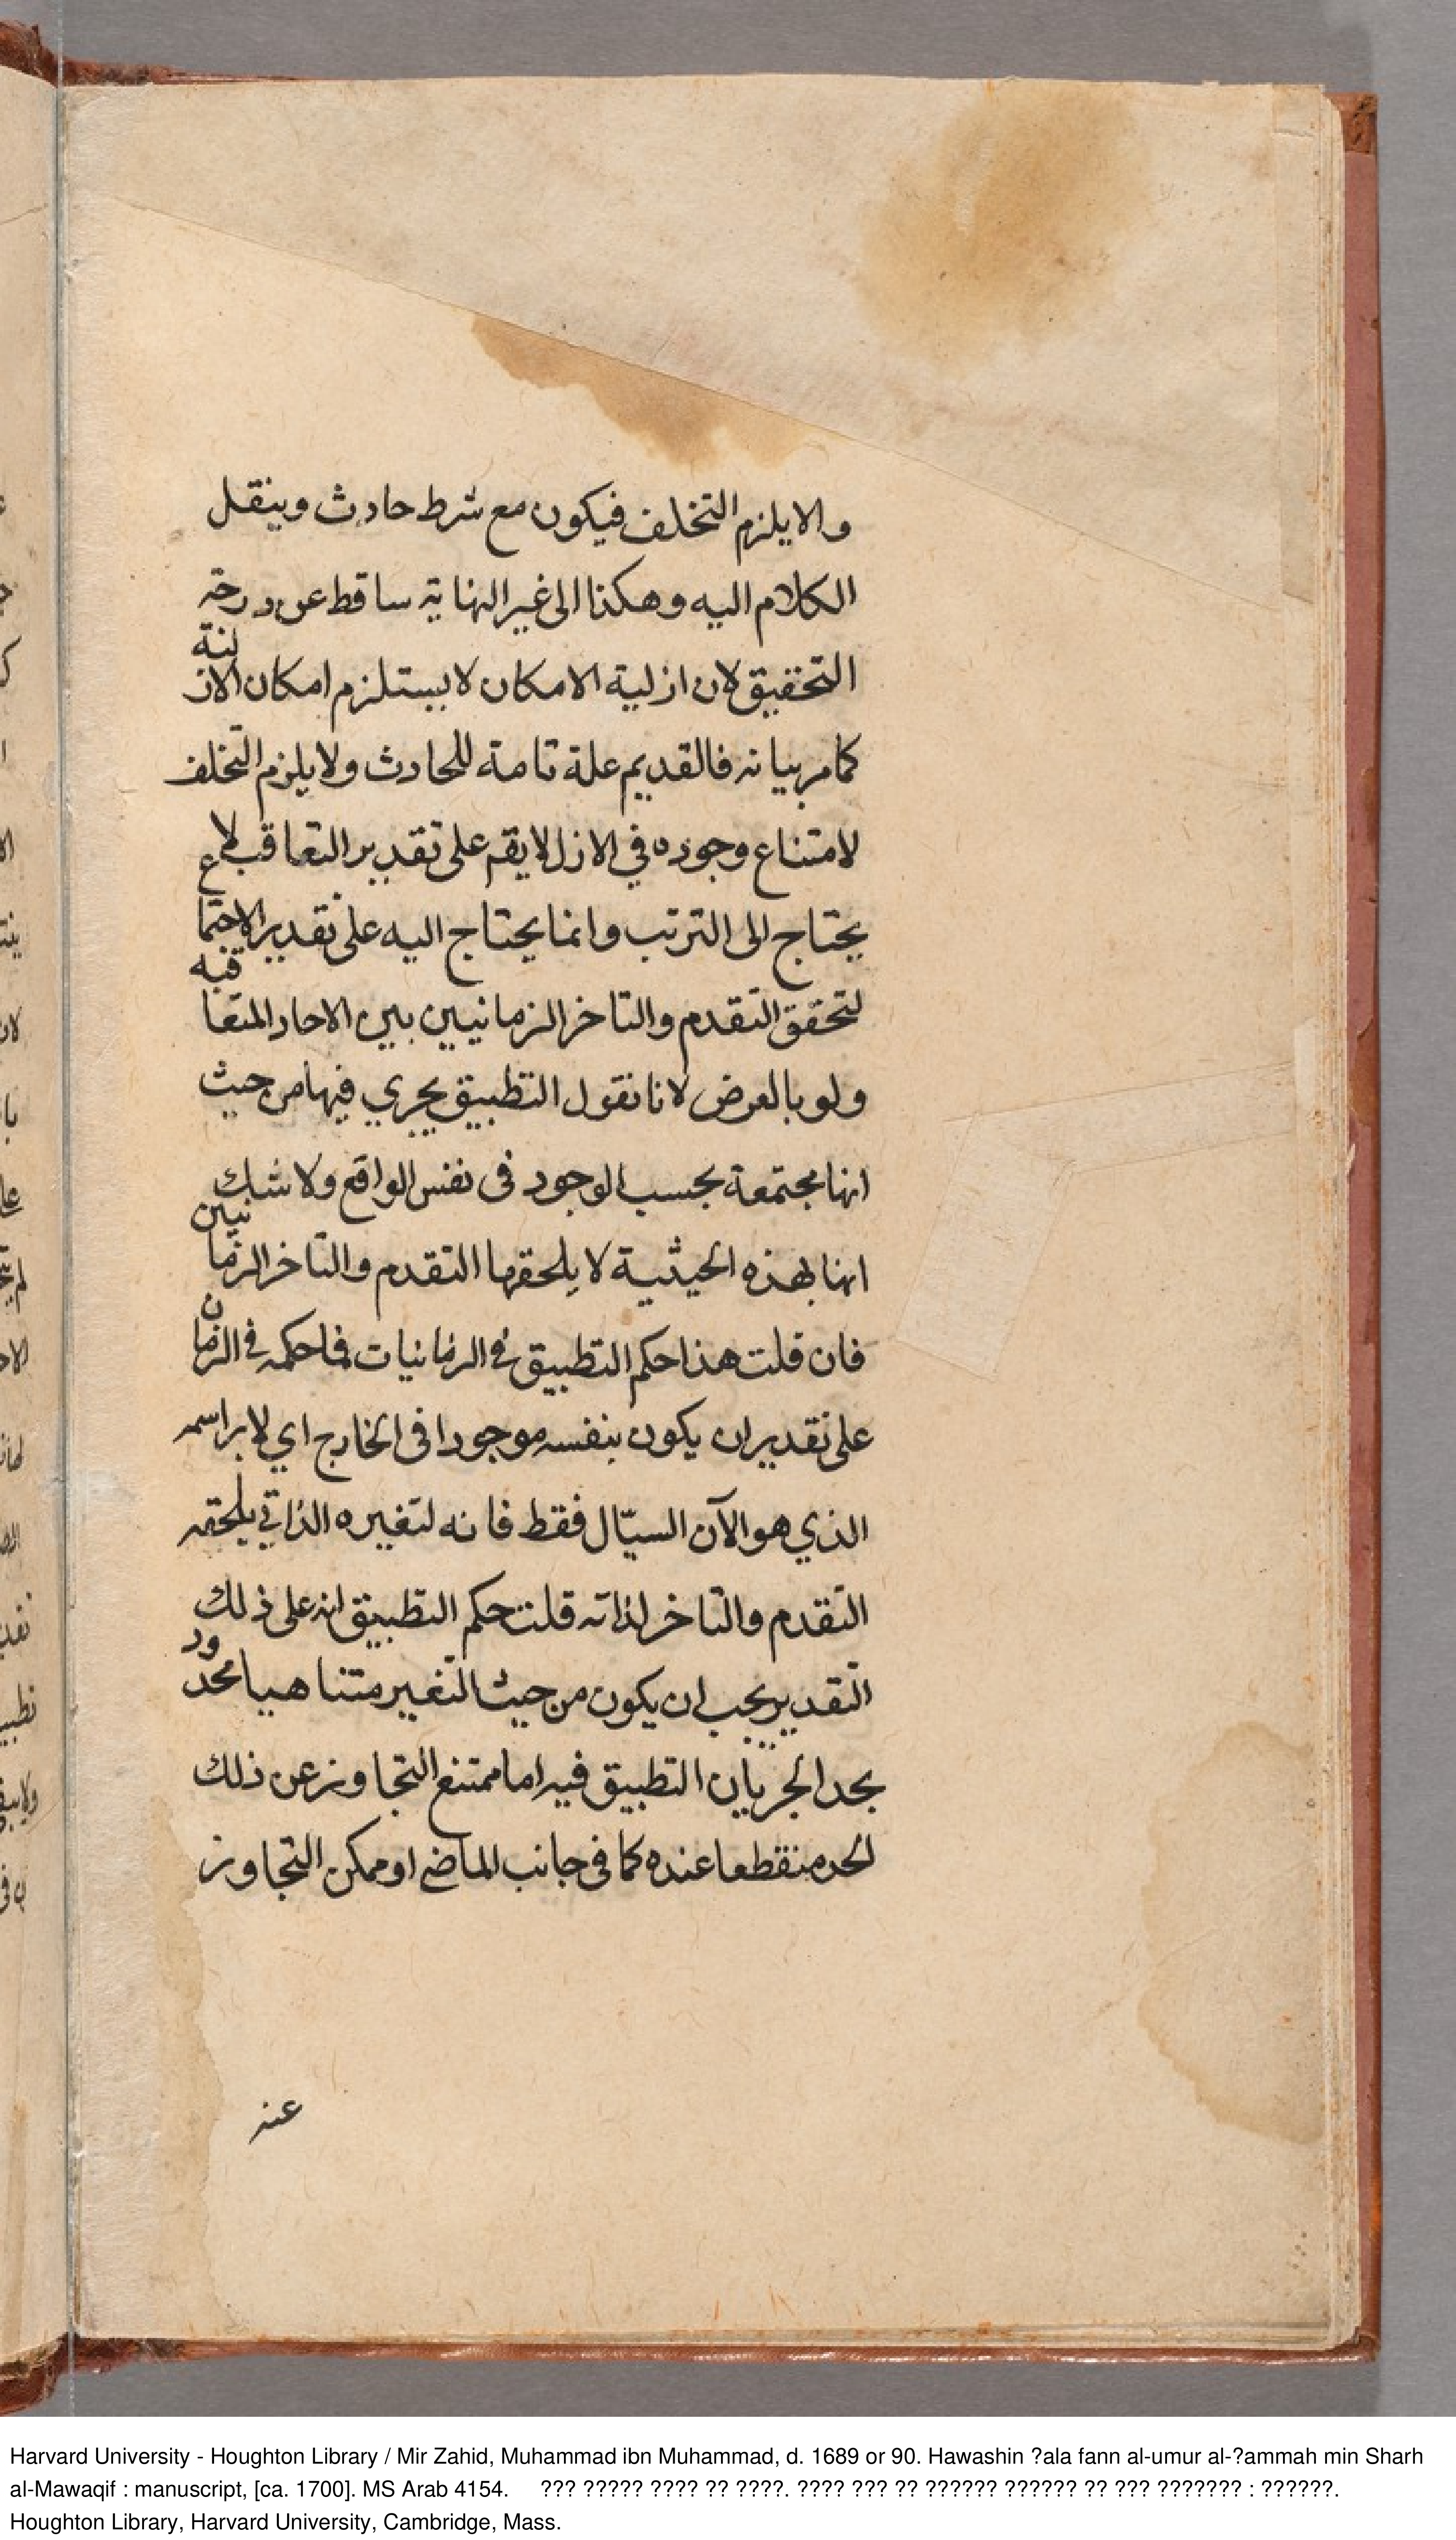 والا يلزم التخلف فيكون مع شرط حادث وينقل
الكلام اليه وهكذا الى غير النهاية ساقط عن درجة
التحقيق لان ازلية الامكان لا يستلزم امكان الازلية
كما مر بيانه فالقديم علة تامة للحادث ولا يلزم التخلف
لامتناع وجوده في الازل لا يقم على تقدير التعاقب لا
يحتاج الى الترتب وانما يحتاج اليه على تقدير الاجتماع
لتحقق التقدم والتاخر الزمانيين بين الاحاد المتعاقبه
ولو بالعرض لانا نقول التطبيق يجري فيها من حيث
انها مجتمعة بحسب الوجود في نفس الواقع ولا شك
انها بهذه الحيثية لا يلحقها التقدم والتاخر الزمانيين
فان قلت هذا حكم التطبيق في الزمانيات فما حكمه في الزمان
على تقدير ان يكون بنفسه موجودا في الخارج اي لا براسمه
الذي هو الآن السيّال فقط فانه لتغيره الذاتي يلحقه
التقدم والتاخر لذاته قلت حكم التطبيق انه على ذلك
التقدير يجب ان يكون من حيث التغير متناهيا محدود
بحد الجريان التطبيق فيه اما ممتنع التجاوز عن ذلك
الحد منقطعا عنده كما في جانب الماضي او ممكن التجاوز
عنه
Harvard University - Houghton Library / Mir Zahid, Muhammad ibn Muhammad, d. 1689 or 90. Hawashin ?ala fann al-umur al-?ammah min Sharh
al-Mawaqif : manuscript, [ca. 1700]. MS Arab 4154. ??? ????? ???? ?? ????. ???? ??? ?? ?????? ?????? ?? ??? ??????? : ??????.
Houghton Library, Harvard University, Cambridge, Mass.